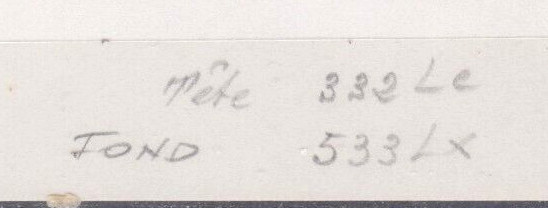 Tête 332 Lc
FOND 533 Lx